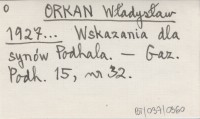 o
ORKAN Władysław
1927... Wskazania dla
synów Podhala. — Gaz.
Podh. 15, nr 32.
BJ/037/0360